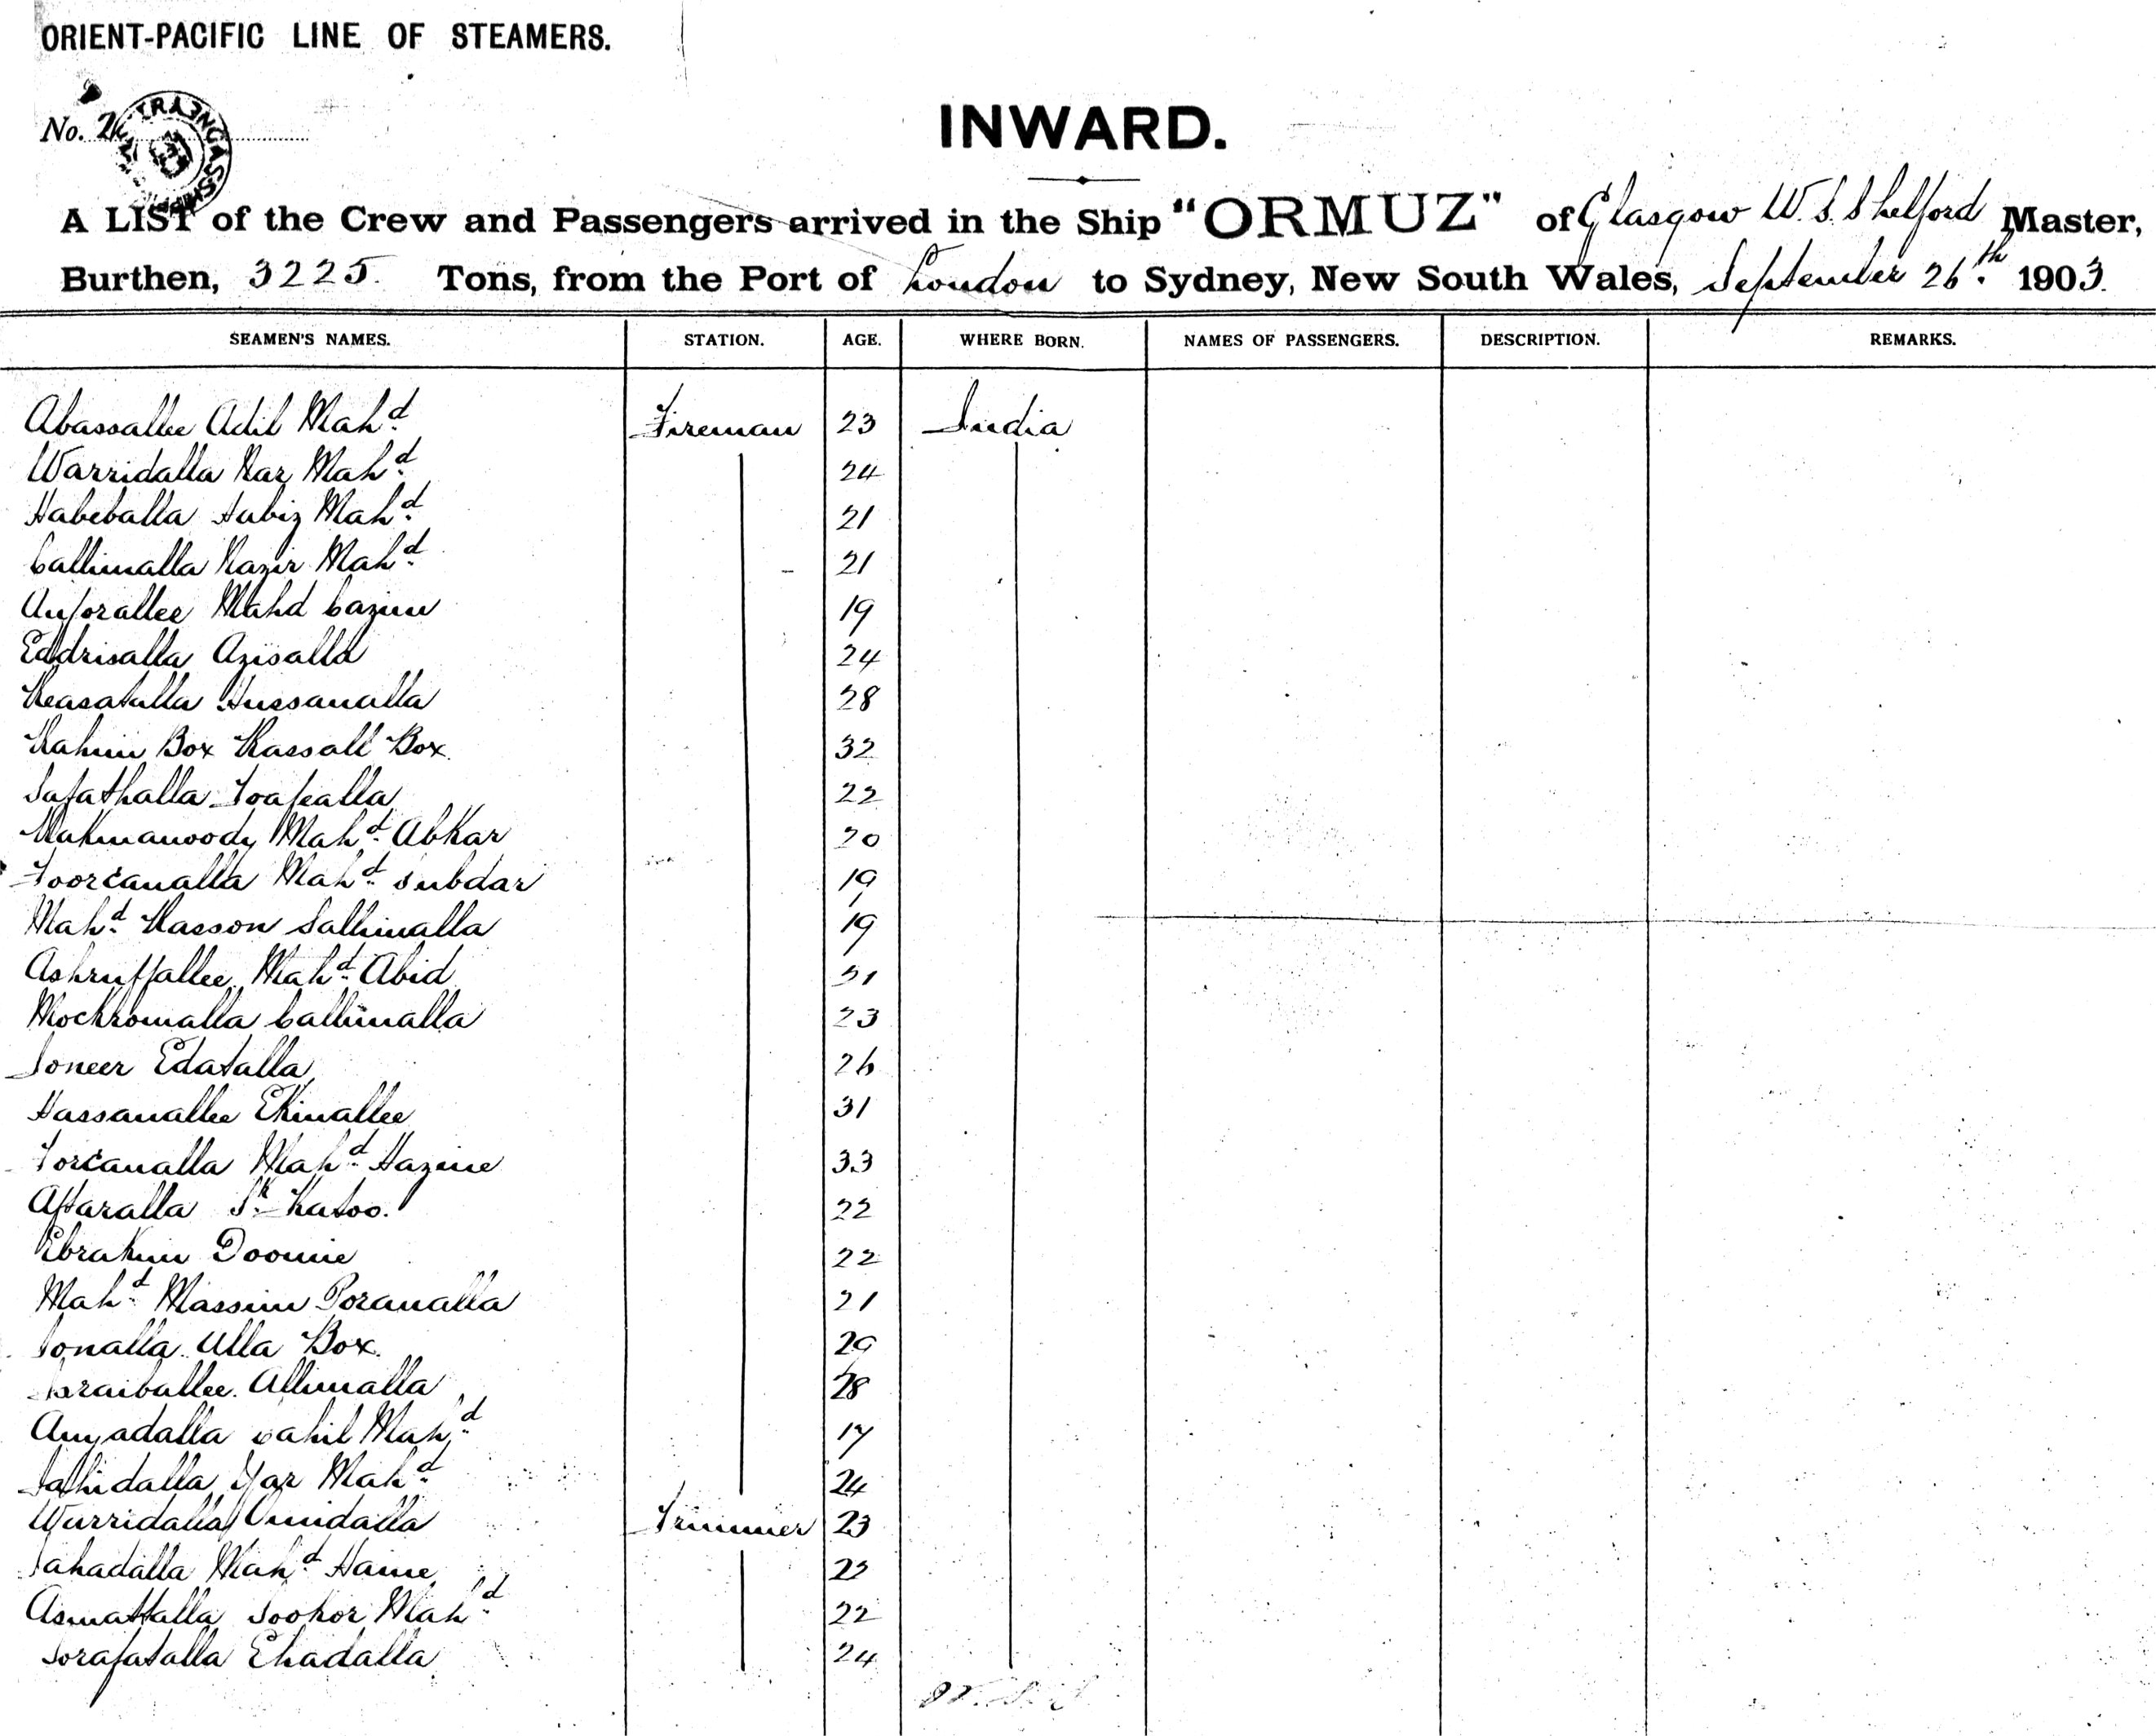 ORIENT-PACIFIC LINE OF STEAMERS.
No. 2
INWARD.
A LIST of the Crew and Passengers arrived in the Ship "ORMUZ" of Glasgow W. S. Shelford Master,
Burthen, 3225. Tons, from the Port of London to Sydney, New South Wales, September 26th. 1903.
SEAMEN'S NAMES. STATION. AGE. WHERE BORN. NAMES OF PASSENGERS. DESCRIPTION. REMARKS.
Abassallee Adil Mahd Fireman 23 India
Warridalla Mahd 24
Habeballa Mahd 21
Callimalla Nazir Mahd 21
Mahd 19
Eddrisalla Azisalla 24
Hussanalla 28
Rahim Box Rassall Box. 32
22
Mahd Abkar 20
Toorcanalla Mahd Subdar 19
Mahd Kasson Sallimalla 19
Ashruffallee Mahd Abid
Mochromalla Callimalla 23
Soneer Edatalla 26
Hassanallee Ekimallee 31
Torcanalla Mahd Hazine 33
Attaralla Sk Katoo. 22
Ebrahim Doomie 22
Mahd Massim Poranalla 21
Sonalla Ulla Box. 29
Allimalla 28
Mahd 17
Sahidalla Yar Mahd 24
Wurridalla Trimmer 23
Sahadalla Mahd Haine
Asmattalla Sookor Mahd 22
Sorafatalla Ehadalla 24